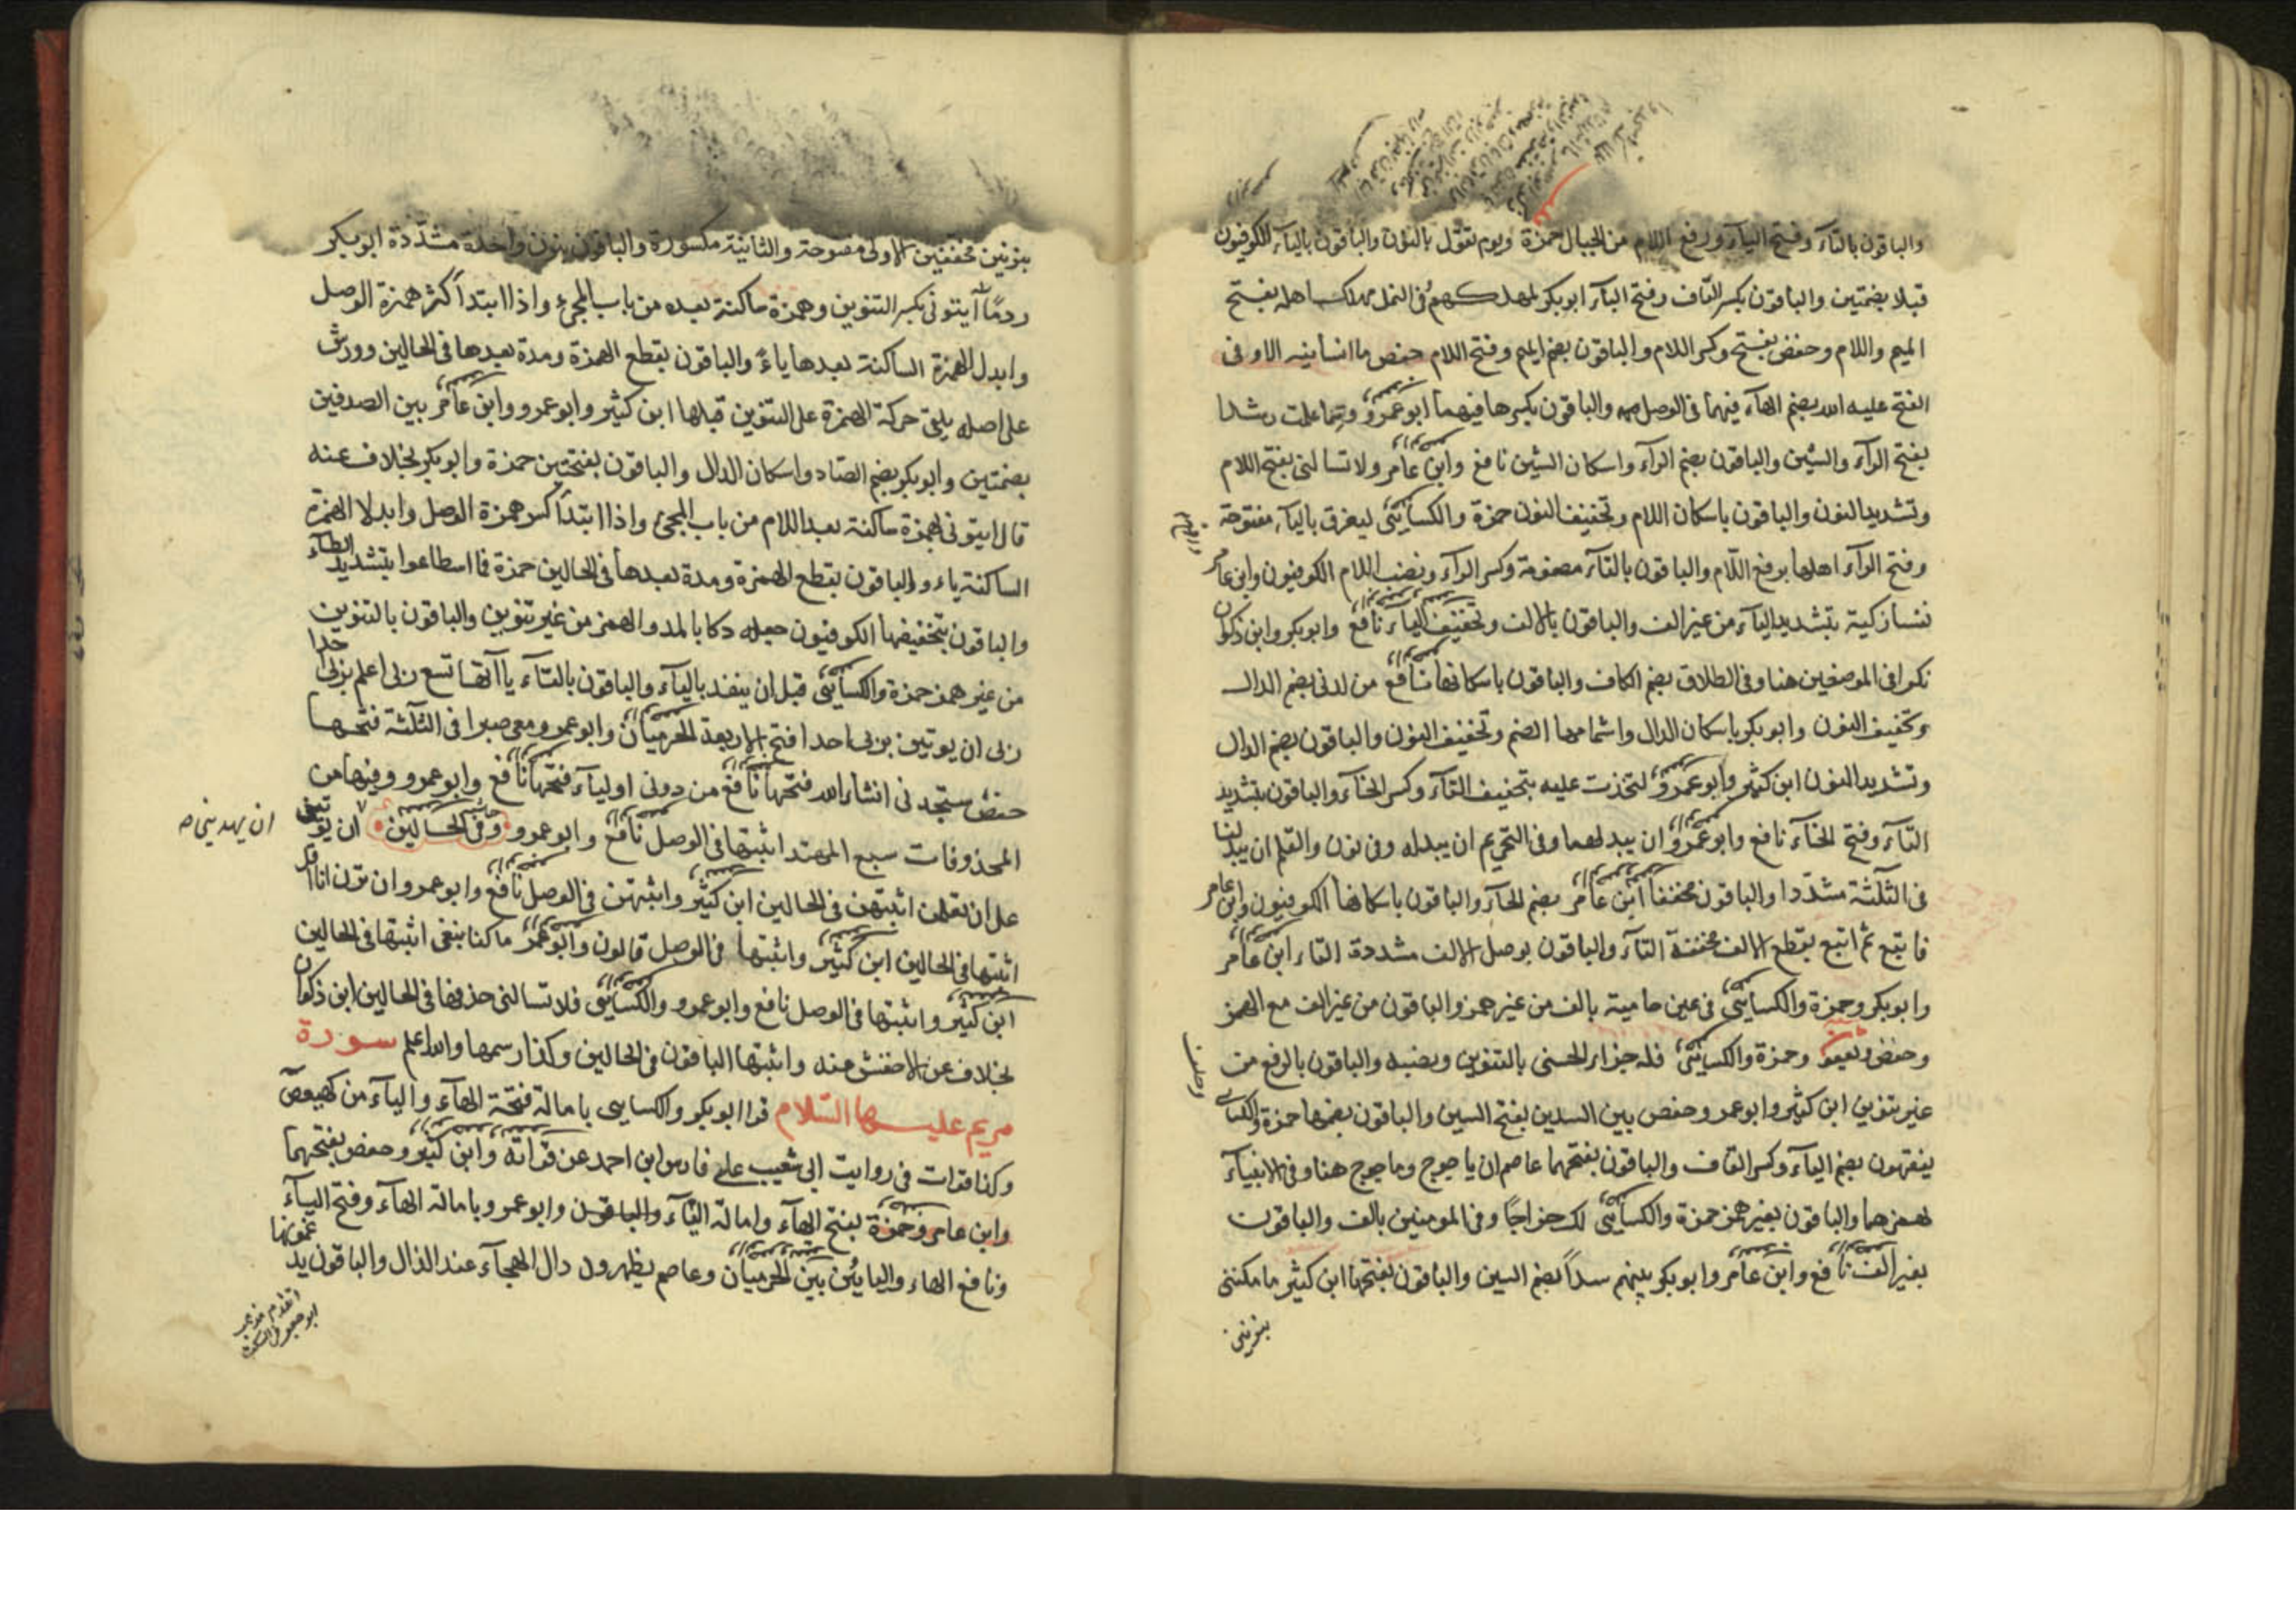 والباقون بالتآء وفتح اليآء ورفع اللام من الجبال حمزة ويوم نقول بالنون والباقون باليآء الكوفيون
قبلا بضمتين والباقون بكسر القاف وفتح البآء ابوبكر لمهلكهم وفى النمل مهلك اهله بفتح
الميم واللام وحفص بفتح وكسر اللام والباقون بضم الميم وفتح اللام حفص ما انسانيه الا وفى
الفتح عليه الله بضم الهآء فيهما فى الوصل والباقون بكسرها فيهما ابو عمرو مما علمت رشدا
بفتح الرآء والشين والباقون بضم الرآء واسكان الشين نافع وابن عامر ولا تسالنى بفتح اللام
وتشديد النون والباقون باسكان اللام وتخفيف النون حمزة والكسائى ليغرق باليآء مفتوحة
وفتح الرآء اهلها برفع اللام والباقون بالتآء مضمومة وكسر الرآء ونصب اللام الكوفيون وابن عامر
نفسا زكية بتشديد اليآء من غير الف والباقون بالالف وتخفيف اليآء نافع وابوبكر وابن ذكوان
نكرا فى الموضعين هنا وفى الطلاق بضم الكاف والباقون باسكانها نافع من لدنى بضم الدال
وتخفيف النون وابوبكر باسكان الدال واشمامها الضم وتخفيف النون والباقون بضم الدال
وتشديد النون ابن كثير وابو عمرو لتخذت عليه بتخفيف التآء وكسر الخآء والباقون بتشديد
التآء وفتح الخآء نافع وابو عمرو ان يبدلهما وفى التحريم ان يبدله وفى نون والقلم ان يبدلنا
فى الثلثة مشددا والباقون مخففا ابن عامر بضم الحآء والباقون باسكانها الكوفيون وابن عامر
فاتبع ثم اتبع بقطع الالف مخففة التآء والباقون بوصل الالف مشددة التاء ابن عامر
وابوبكر وحمزة والكسائى فى عين حامية بالف من غير همز والباقون من غير الف مع الهمز
وحفص وحمزة والكسائى فله جزاء الحسنى بالتنوين ونصبه والباقون بالرفع من
غير تنوين ابن كثير وابو عمرو وحفص بين السدين بفتح السين والباقون بضمها حمزة والكسائى
يفقهون بضم اليآء وكسر القاف والباقون بفتحهما عاصم ان ياجوج وماجوج هنا وفى الانبيآء
بهمزهما والباقون بغير همز حمزة والكسائى لك خراجًا وفى المومنين بالف والباقون
بغير الف نافع وابن عامر وابوبكر بينهم سدًا بضم السين والباقون بفتحها ابن كثير ما مكننى
بنونين
بنونين مخففتين الاولى مفتوحة والثانية مكسورة والباقون بنون واحدة مشددة ابوبكر
ردمًا آيتونى بكسر التنوين وهمزة ساكنة بعده من باب المجئ واذا ابتدا كسر همزة الوصل
وابدل الهمزة الساكنة بعدها ياءً والباقون بقطع الهمزة ومدة بعدها فى الحالين وورش
على اصله يلقى حركة الهمزة على التنوين قبلها ابن كثير وابو عمرو وابن عامر بين الصدفين
بضمتين وابوبكر بضم الصاد واسكان الدال والباقون بفتحتين حمزة وابوبكر بخلاف عنه
قال ايتونى بهمزة ساكنة بعد اللام من باب المجئ واذا ابتدأ كسر همزة الوصل وابدلا الهمزة
الساكنة ياء والباقون بقطع الهمزة ومدة بعدها فى الحالين حمزة فما اسطاعوا بتشديد الطآء
والباقون بتخفيفها الكوفيون جعله دكا بالمد والهمز من غير تنوين والباقون بالتنوين
من غير همز حمزة والكسائى قبل ان ينفد باليآء والباقون بالتآء ياآتها تسع ربى اعلم بربى احدا
ربى ان يوتين بربى احدا فتح الاربعة الحرميان وابو عمرو معى صبرا فى الثلثة فتحها
حفص ستجدنى انشاء الله فتحها نافع من دونى اوليآء فتحها نافع وابو عمرو وفيها من
المحذوفات سبع المهتد اثبتها فى الوصل نافع وابو عمرو وفى الحالين ان يوتين
ان يهدينى صه
على ان تعلمن اثبتهن فى الحالين ابن كثير واثبتهن فى الوصل نافع وابو عمرو ان ترن انا اقل
اثبتها فى الحالين ابن كثير واثبتها فى الوصل قالون وابو عمرو ما كنا نبغى اثبتها فى الحالين
ابن كثير واثبتها فى الوصل نافع وابو عمرو والكسائى فلا تسالنى حذفها فى الحالين ابن ذكوان
بخلاف عن الاخفش عنه واثبتها الباقون فى الحالين وكذا رسمها والله اعلم سورة
مريم عليها السلام قرا ابوبكر والكسايى بامالة فتحة الهآء واليآء من كهيعص
وكذا قرات فى روايت ابى شعيب على فارس ابن احمد عن قرآته وابن كثير وحفص بفتحهما
وابن عامر وحمزة بفتح الهآء وامالة اليآء وابو عمرو بامالة الهآء وفتح اليآء
ونافع الهاء واليا بين بين الحرميان وعاصم يظهرون دال الهجآء عند الذال والباقون يدغمونها